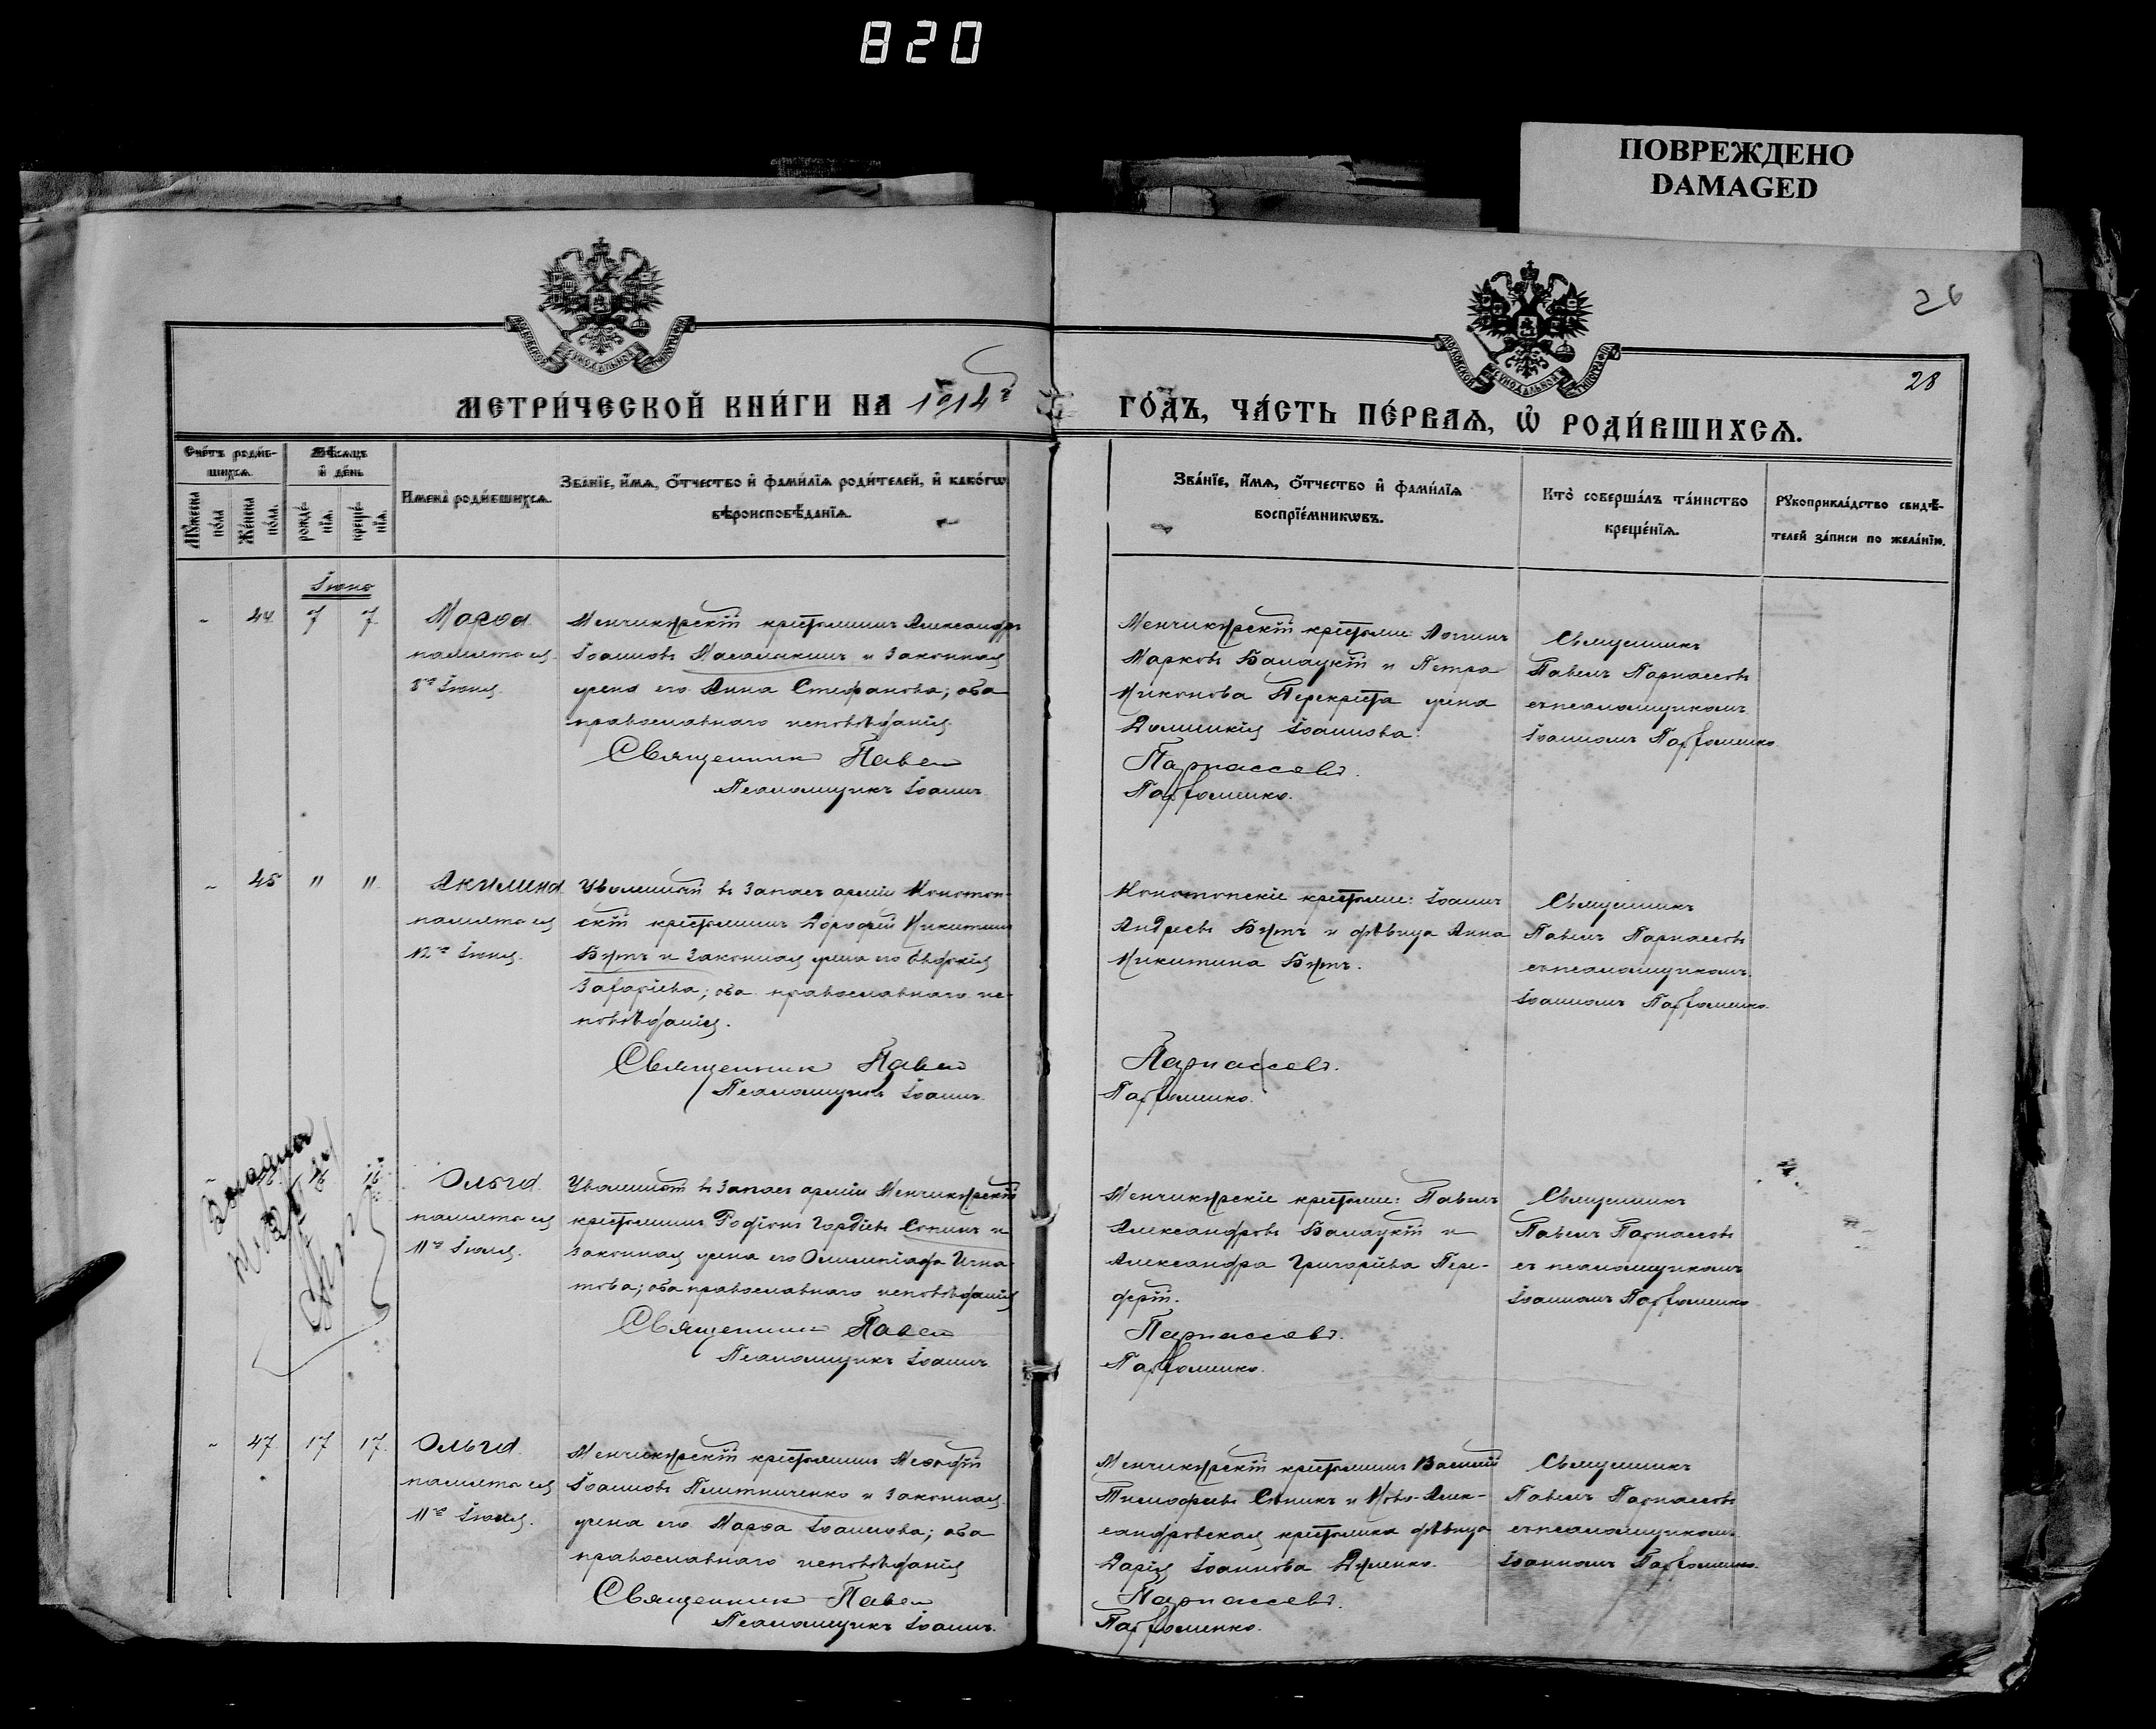 820
ПОВРЕЖДЕНО
DAMAGED
26
28
МЕТРИ́ЧЕСКОЙ КНИ́ГИ НА 1914г
ГО́ДЪ, ЧА́СТЬ ПЕ́РВАѦ, Ѡ҆ РОДИ́ВШИХСѦ.
Сче́тъ роди́в-
шихсѧ.
Мѣ́сѧцъ
и҆ де́нь
Мꙋ́жеска
по́ла
Же́нска
по́ла.
рожде́-
нїѧ.
креще́-
нїѧ.
И҆мена̀ роди́вшихсѧ.
Зва́нїе, и҆́мѧ, ѻ҆́тчество и҆ фамѝлїѧ роди́телей, и҆ како́гѡ
вѣроисповѣ́данїѧ.
Зва́нїе, и҆́мѧ, ѻ҆́тчество и҆ фамѝлїѧ
воспрїе́мникѡвъ.
Кто̀ соверша́лъ та́инство
креще́нїѧ.
Рꙋкоприкла́дство свидѣ́-
телей за́писи по жела́нїю.
Іюнь
44 7 7 Марѳа
память ея
8го Іюня.
крестьянинъ Александръ
Іоанновъ и законная
жена его Анна Стефанова; оба
православнаго исповѣданія
Священник Павел
Псаломщикъ Іоаннъ
Марковъ и Петра
Никонова Перекреста жена
Іоаннова.
Парнассовъ.
Парфоменко.
Священникъ
Павелъ Парнассовъ
съ псаломщикомъ
Іоанномъ Парфоменко.
45 " " Акилина
память ея
12го Іюня.
въ запасъ арміи Конотоп-
скій крестьянинъ Дорофей Никитинъ
Бутъ и законная жена его Евдокія
православнаго ис-
повѣданія.
Священник Павел
Псаломщикъ Іоаннъ.
Конотопскіе крестьяне: Іоаннъ
Андреевъ Бутъ и дѣвица Анна
Никитина Бутъ.
Парнассовъ.
Парфоменко.
Священникъ
Павелъ Парнассовъ
съ псаломщикомъ
Іоанномъ Парфоменко.
Ольга
память ея
11го Іюля.
въ запасъ арміи
крестьянинъ Родіонъ Гордіевъ и
законная жена его Олимпіада Игна-
това; оба православнаго исповѣданія
Священник Павел
Псаломщикъ Іоаннъ.
крестьяне: Павелъ
Александровъ и
Александра Григоріева Пере-
Парнассовъ.
Парфоменко.
Священникъ
Павелъ Парнассовъ
съ псаломщикомъ
Іоанномъ Парфоменко
47. 17 17. Ольга
память ея
11го Іюля.
крестьянинъ Меѳодій
Іоанновъ Плитниченко и законная
жена его Марѳа Іоаннова; оба
православнаго исповѣданія
Священник Павел
Псаломщикъ Іоаннъ.
крестьянинъ Василій
Тимофеевъ и Ново-Алек-
сандровская крестьянка дѣвица
Дарія Іоаннова
Парнассовъ.
Парфоменко.
Священникъ
Павелъ Парнассовъ
съ псаломщикомъ
Іоанномъ Парфоменко.